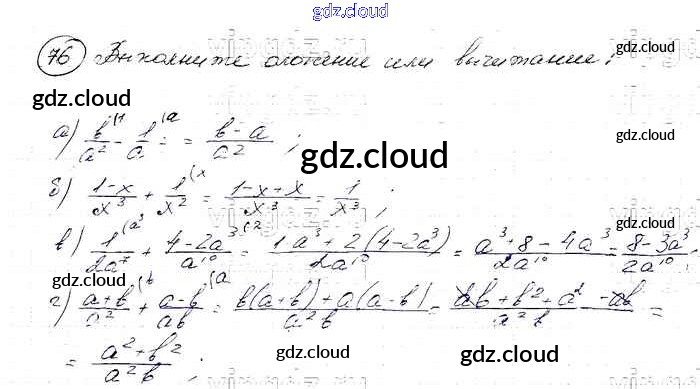 gdz.cloud
76 Выполните сложение или вычитание:
gdz.cloud
gdz.cloud
а) b/a² - 1/a = (b-a)/a² ;
gdz.cloud
gdz.cloud
б) (1-x)/x³ + 1/x² = (1-x+x)/x³ = 1/x³ ;
gdz.cloud
в) 1/2a⁷ + (4-2a³)/a¹⁰ = (1a³+2(4-2a³))/2a¹⁰ = (a³+8-4a³)/2a¹⁰ = (8-3a³)/2a¹⁰ ;
gdz.cloud
г) (a+b)/a² + (a-b)/ab = (b(a+b)+a(a-b))/a²b = (ab+b²+a²-ab)/a²b =
= (a²+b²)/a²b ;
gdz.cloud
gdz.cloud
gdz.cloud